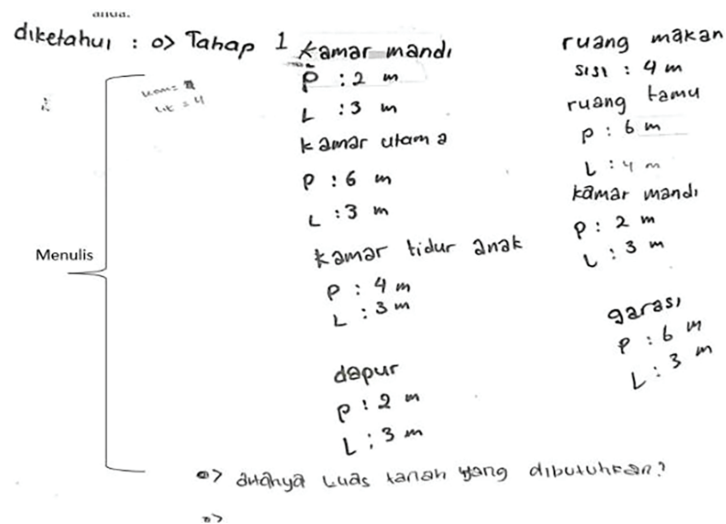 diketahui : => Tahap 1
kamar mandi
P : 2 m
L : 3 m
kamar utama
P : 6 m
L : 3 m
kamar tidur anak
P : 4 m
L : 3 m
dapur
P : 2 m
L : 3 m
ruang makan
sisi : 4 m
ruang tamu
P : 6 m
L : 4 m
kamar mandi
P : 2 m
L : 3 m
garasi
P : 6 m
L : 3 m
Menulis
=> ditanya Luas tanah yang dibutuhkan?
=>